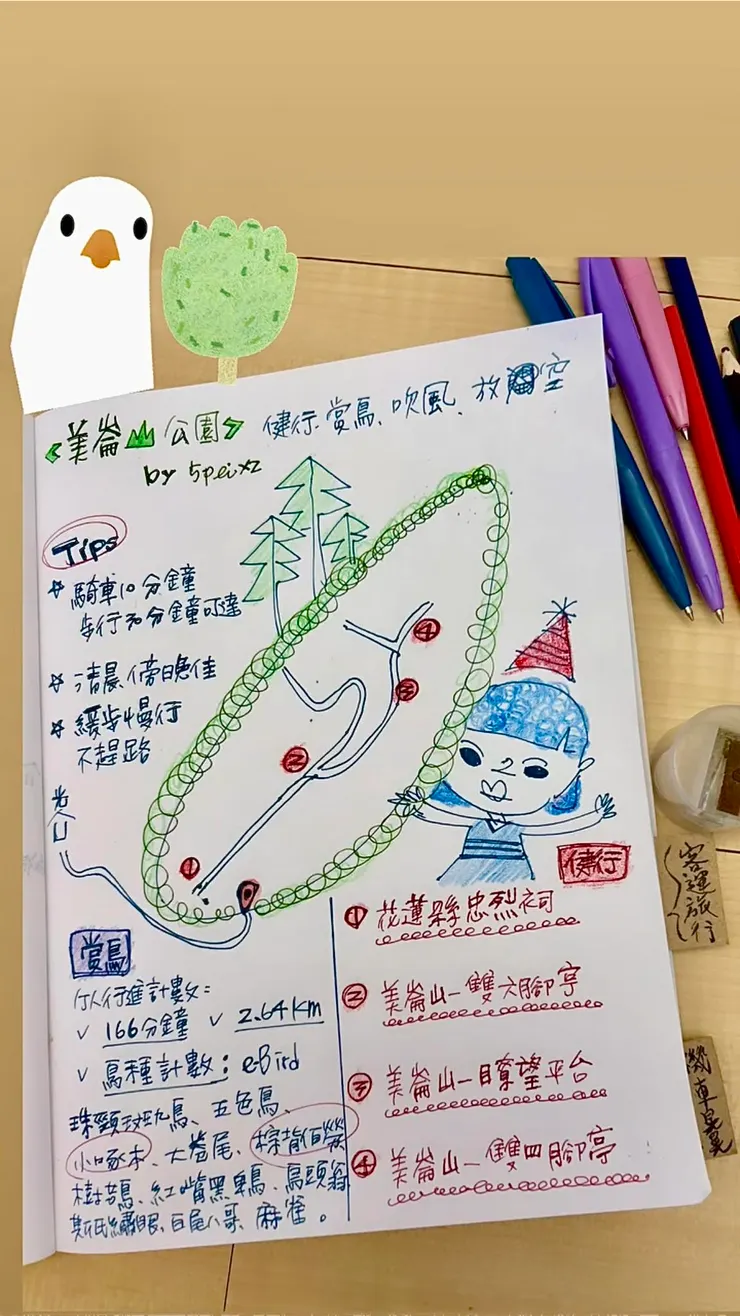 《美崙山公園》 健行、賞鳥、吹風、放空
by 5peixz
Tips
☆ 騎車10分鐘
步行30分鐘可達
☆ 清晨傍晚佳
☆ 緩步慢行
不趕路
①
②
③
④
賞鳥
行進計數:
✓ 166分鐘 ✓ 2.64km
✓ 鳥種計數: eBird
珠頸斑鳩、五色鳥、
小啄木、大卷尾、棕背伯勞
樹鵲、紅嘴黑鵯、烏頭翁
斯氏繡眼、白尾八哥、麻雀。
健行
① 花蓮縣忠烈祠
② 美崙山-雙六腳亭
③ 美崙山-瞭望平台
④ 美崙山-雙四腳亭
客運旅行